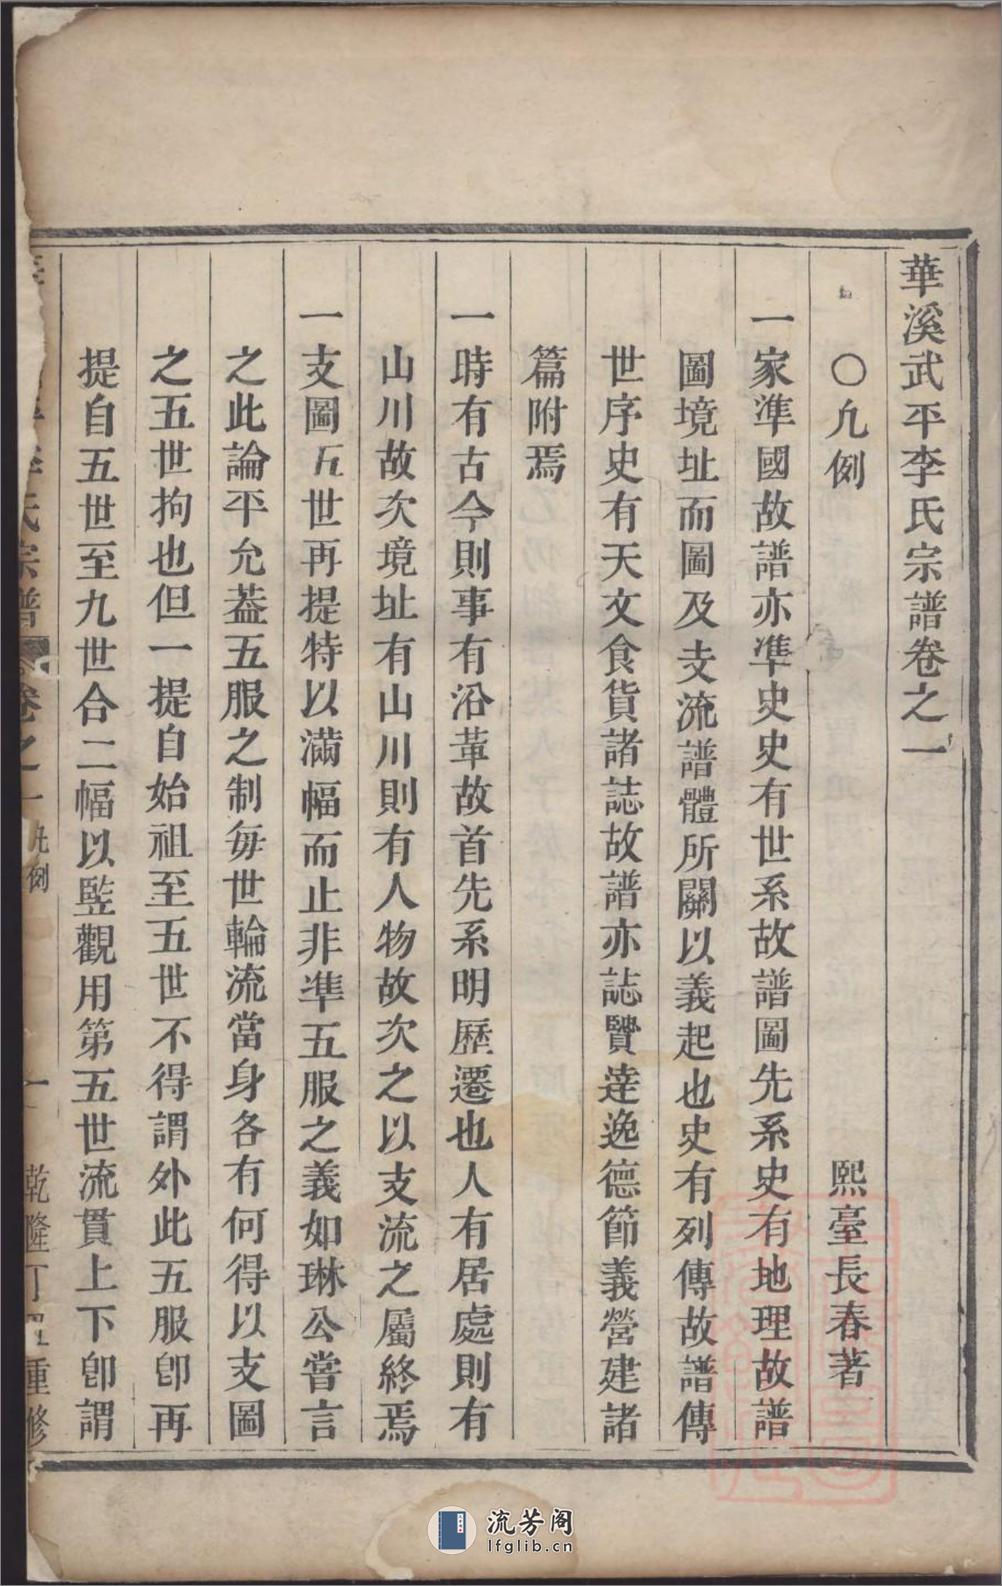 華溪武平李氏宗譜卷之一
○凡例　熙臺長春著
一家準國故譜亦準史史有世系故譜圖先系史有地理故譜
圖境址而圖及支流譜體所關以義起也史有列傳故譜傳
世序史有天文食貨諸誌故譜亦誌賢達逸德節義營建諸
篇附焉
一時有古今則事有沿革故首先系明歷遷也人有居處則有
山川故次境址有山川則有人物故次之以支流之屬終焉
一支圖五世再提特以滿幅而止非準五服之義如琳公嘗言
之此論平允葢五服之制每世輪流當身各有何得以支圖
之五世拘也但一提自始祖至五世不得謂外此五服卽再
提自五世至九世合二幅以監觀用第五世流貫上下卽謂
李氏宗譜 卷之一 凡例 一 乾隆丁 重修
流芳阁
lfglib.cn